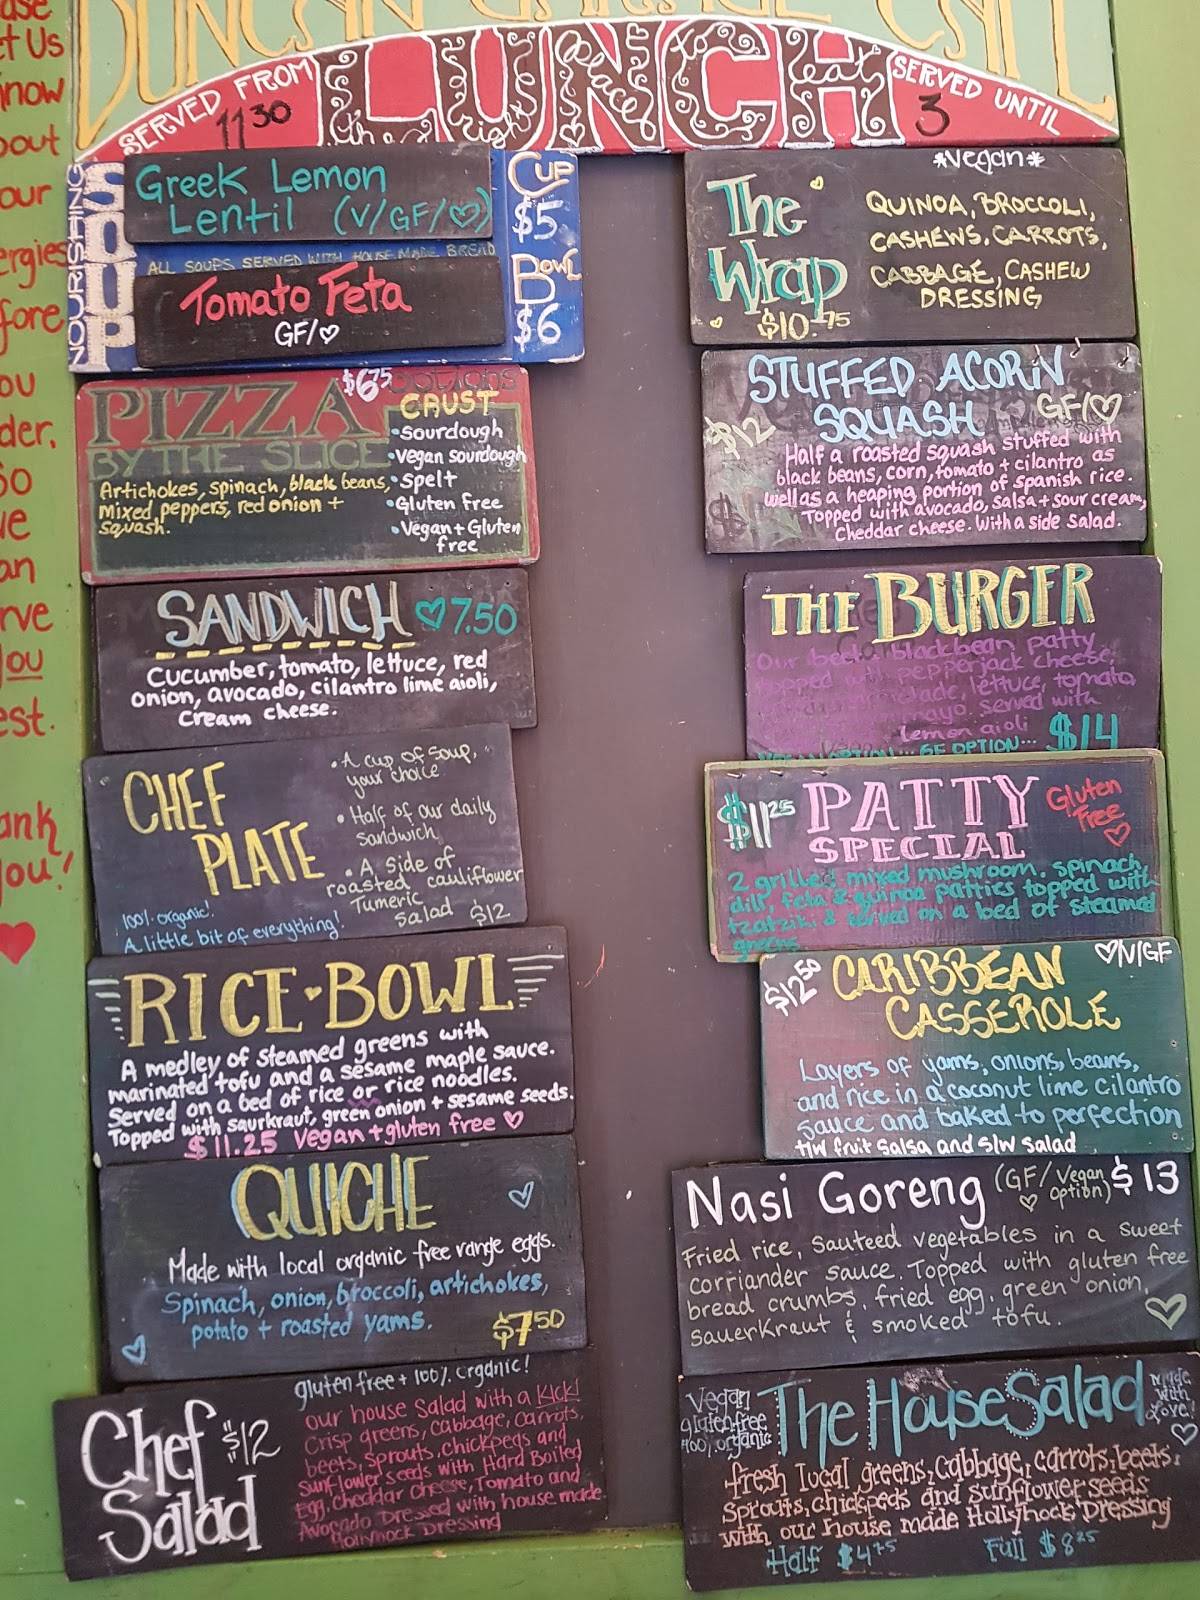 DUNCAN GARAGE CAFE
SERVED FROM
11 30
LUNCH
the right place to eat
SERVED UNTIL
3
et Us
know
bout
our
ergies
fore
ou
der.
So
we
an
rve
you
est.
ank
you!
NOURISHING
SOUP
Greek Lemon
Lentil (V/GF/♡)
ALL SOUPS SERVED WITH HOUSE MADE BREAD
Tomato Feta
GF/♡
CUP
$5
BOWL
$6
PIZZA
$6.75
BY THE SLICE
Artichokes, spinach, black beans,
mixed peppers, red onion +
squash.
options
CRUST
• Sourdough
• Vegan sourdough
• Spelt
• Gluten free
• Vegan + Gluten
free
SANDWICH ♡ 7.50
Cucumber, tomato, lettuce, red
onion, avocado, cilantro lime aioli,
cream cheese.
CHEF
PLATE
100% organic!
A little bit of everything!
• A cup of soup,
your choice
• Half of our daily
sandwich
• A side of
roasted cauliflower
Tumeric
salad $12
RICE ♥ BOWL
A medley of steamed greens with
marinated tofu and a sesame maple sauce.
Served on a bed of rice or rice noodles.
Topped with saurkraut, green onion + sesame seeds.
$11.25 Vegan + gluten free ♡
QUICHE
Made with local organic free range eggs.
Spinach, onion, broccoli, artichokes,
potato + roasted yams.
$7 50
Chef
Salad
$12
gluten free + 100% organic!
our house salad with a Kick!
Crisp greens, cabbage, carrots,
beets, sprouts, chickpeas and
sunflower seeds with Hard Boiled
Egg, cheddar cheese, Tomato and
Avocado Dressed with house made
Hollyhock Dressing
*Vegan*
The
Wrap
$10.75
QUINOA, BROCCOLI,
CASHEWS, CARROTS,
CABBAGE, CASHEW
DRESSING
STUFFED ACORN
SQUASH
GF/♡
$12
Half a roasted squash stuffed with
black beans, corn, tomato + cilantro as
well as a heaping portion of spanish rice.
Topped with avocado, salsa + sour cream,
Cheddar cheese. With a side salad.
THE BURGER
black bean patty
topped with pepperjack cheese,
lettuce, tomato
mayo. served with
lemon aioli
GF OPTION... $14
$11 25
PATTY
SPECIAL
Gluten
Free
♡
2 grilled mixed mushroom, spinach,
dill, feta & quinoa patties topped with
tzatziki & served on a bed of steamed
greens
$12 50
CARIBBEAN
CASSEROLE
♡/V/GF
Layers of yams, onions, beans,
and rice in a coconut lime cilantro
sauce and baked to perfection
T/W fruit salsa and S/W salad
Nasi Goreng (GF/Vegan option) $13
Fried rice, sauteed vegetables in a sweet
corriander sauce. Topped with gluten free
bread crumbs, fried egg, green onion,
sauerkraut & smoked tofu.
Vegan
gluten free
100% organic
The House Salad
Made
with
Love!
fresh local greens, cabbage, carrots, beets,
Sprouts, chickpeas and sunflower seeds
with our house made Hollyhock Dressing
Half $4 75
Full $8 25